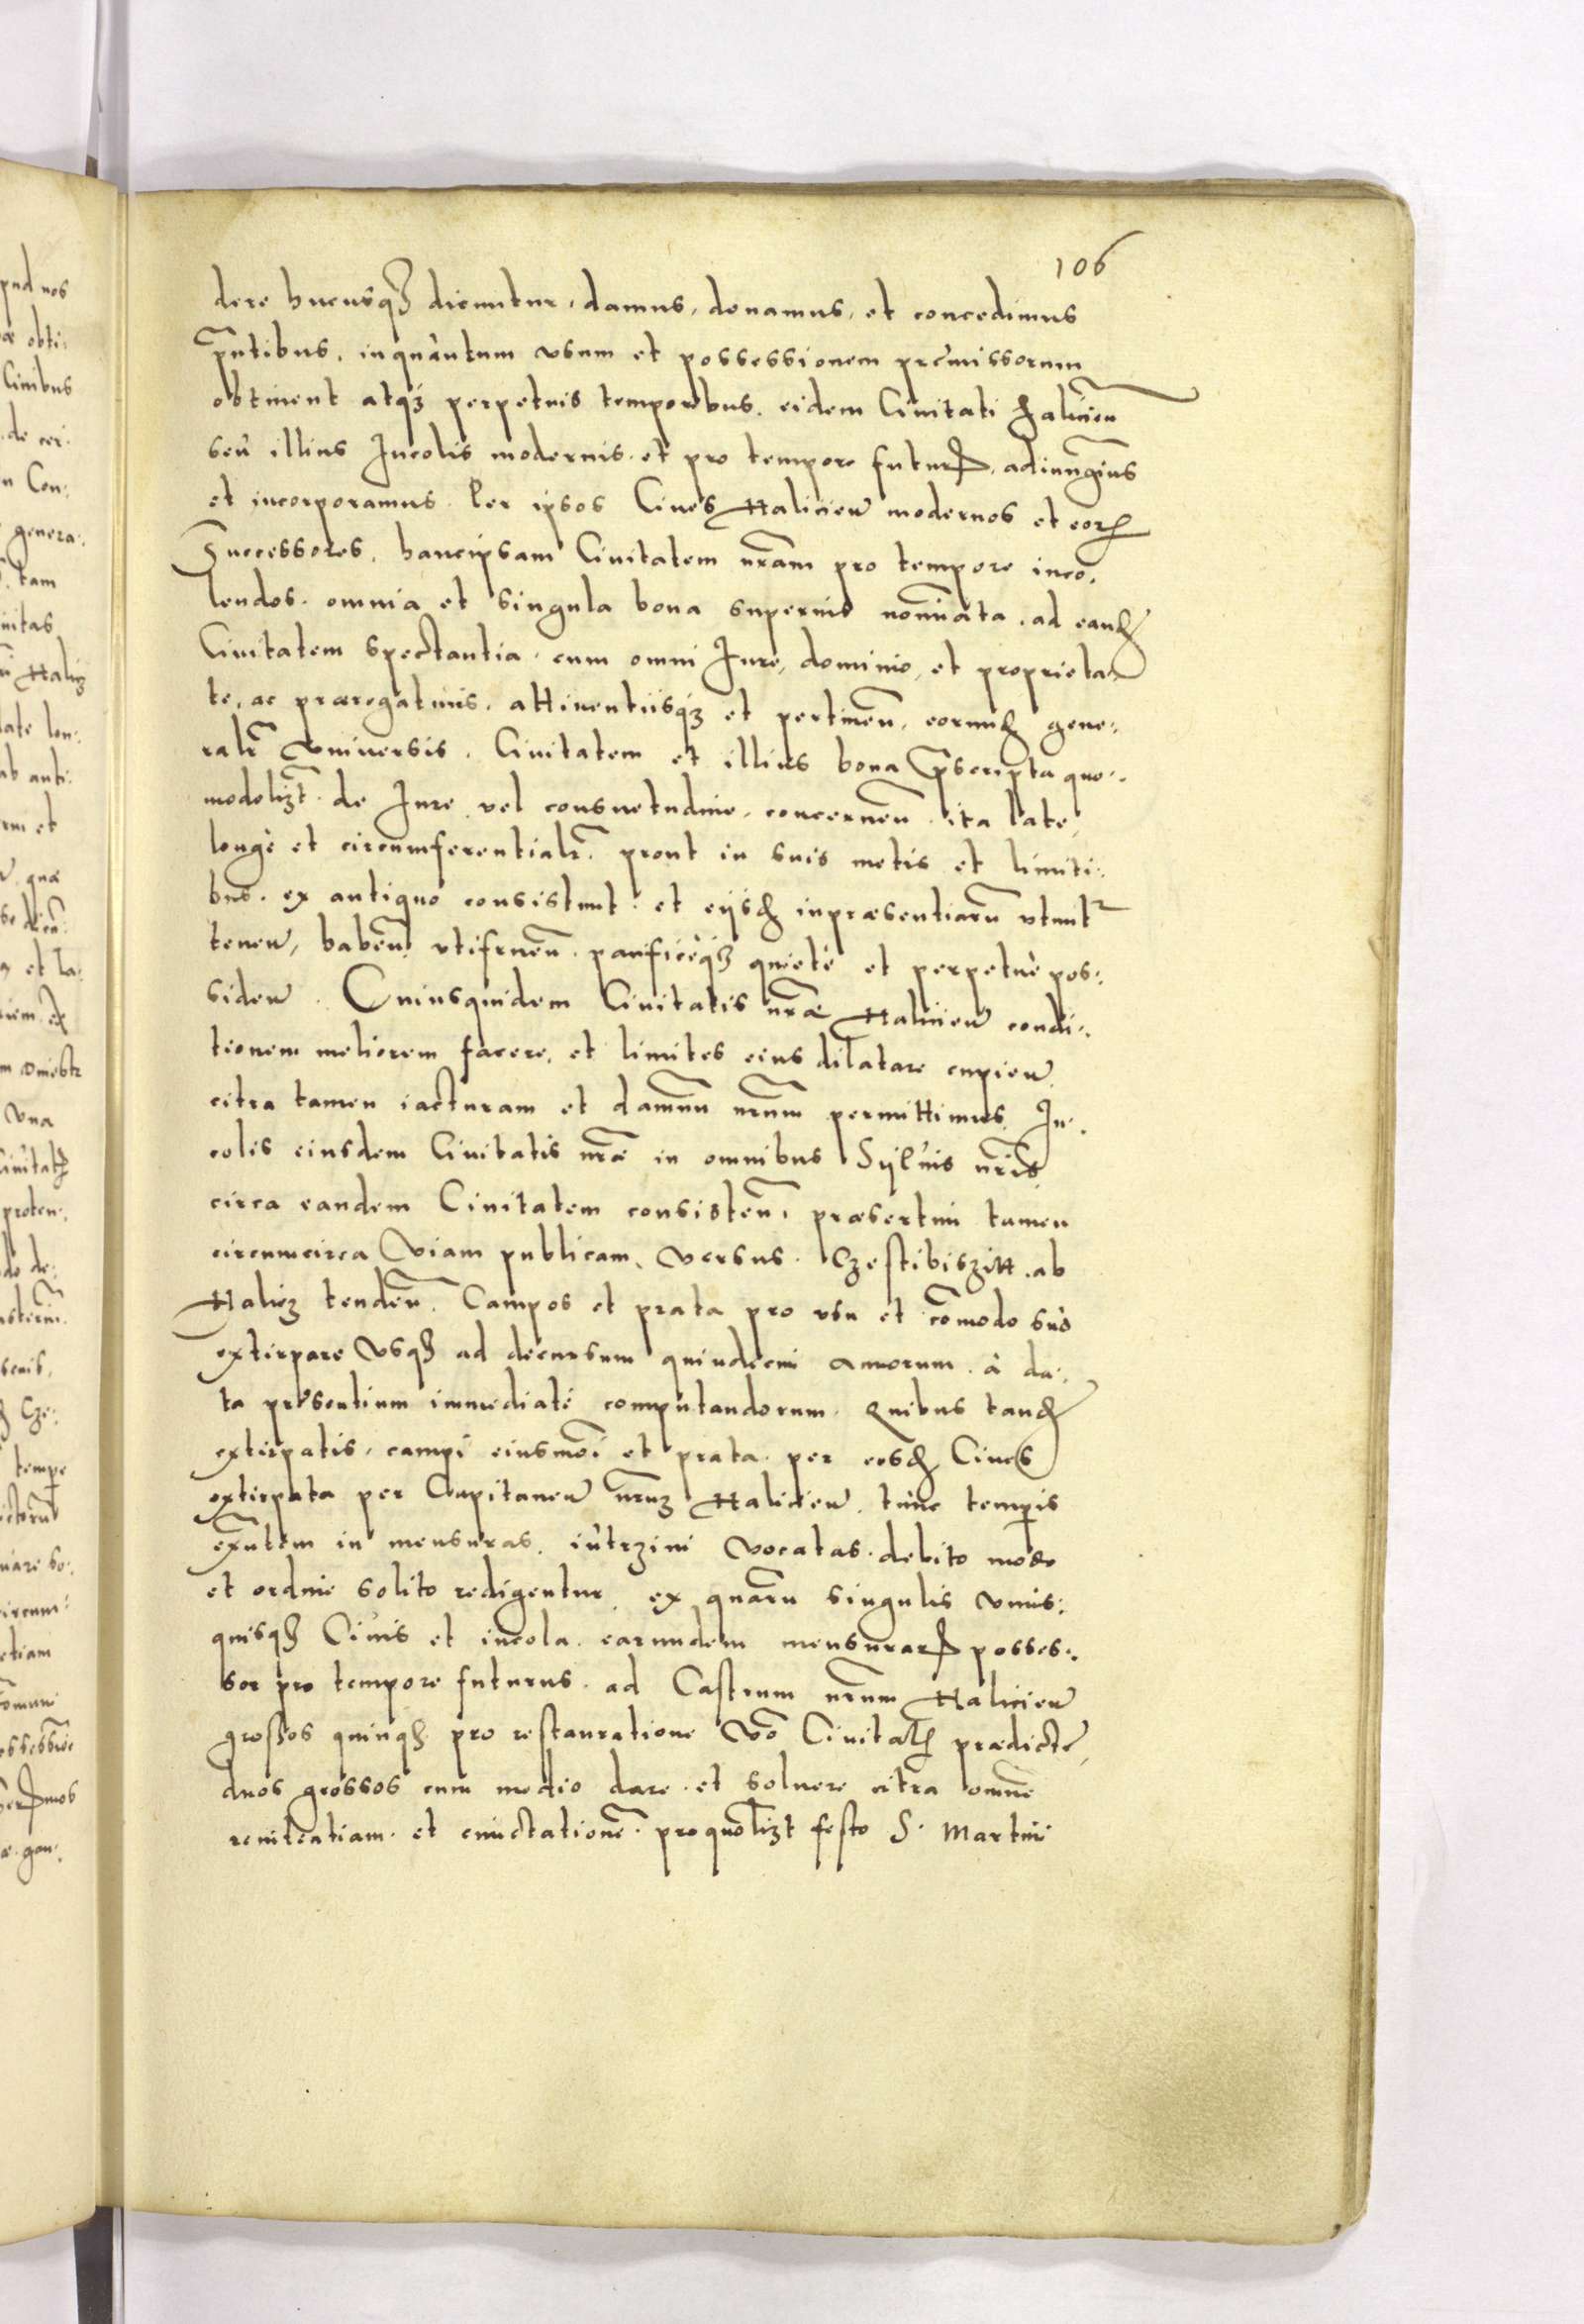 106
dere hucusq₃ dicuntur, damus, donamus, et concedimus
p̄ntibus, inquantum vsum et possessionem pręmissorum
obtinent atq₃ perpetuis temporibus, eidem Ciuitati Halicieñ
seu illius Incolis modernis et pro tempore futurꝝ, adiungim̄us
et incorporamus. Per ipsos Ciues Halicieñ modernos et eorꝝ
Successores, hancipsam Ciuitatem nr̄am pro tempore inco,
lendos, omnia et singula bona superius nom̄iata, ad eandꝫ
Ciuitatem spectantia, cum omni Jure, dominio, et proprieta,
te, ac prærogatiuis, attinentiisq₃ et pertineñ, eorundꝫ gene:
ralr̄ vniuersis, Ciuitatem et illius bona p̄scripta quo:
modolꝫt de Jure vel consuetudine, concerneñ ita late,
longè et circumferentialr̄, prout in suis metis et limiti:
bus, ex antiquo consistunt, et eijsdꝫ inpræsentiarū vtunt᷑
teneñ, habeñ, vtifrueñ, pacificèq₃ quietè et perpetuè pos:
sideñ. Cuiusquidem Ciuitatis nr̄æ Halicieñ condi:
tionem meliorem facere, et limites eius dilatare cupieñ
citra tamen iacturam et damnū nr̄um permittimus In:
colis eiusdem Ciuitatis nr̄æ in omnibus Syluis nr̄is
circa eandem Ciuitatem consisteñ, præsertim tamen
circumcirca Viam publicam, versus Czestibiszitt ab
Halicz tendeñ, Campos et prata pro vsu et cōmodo suo
extirpare vsq₃ ad decursum quindecim annorum à da:
ta pręsentium immediatè computandorum. Quibus tandꝫ
extirpatis, campi eiusmo͞i et prata per eosdꝫ Ciues
extirpata per Capitaneū nr̄um Halicieñ tunc temꝑis
ex̄ntem in mensuras, iutrzini vocatas debito modo
et ordine solito redigentur, ex quarū singulis vnus:
quisq₃ Ciuis et incola earundem mensurarꝝ posses:
sor pro tempore futurus, ad Castrum nr̄um Halicieñ
grossos quinq₃ pro restauratione vō Ciuitatꝭ prædictę
duos grossos cum medio dare et soluere citra omnē
renitentiam et cunctationē, pro quolꝫt festo S. Martini